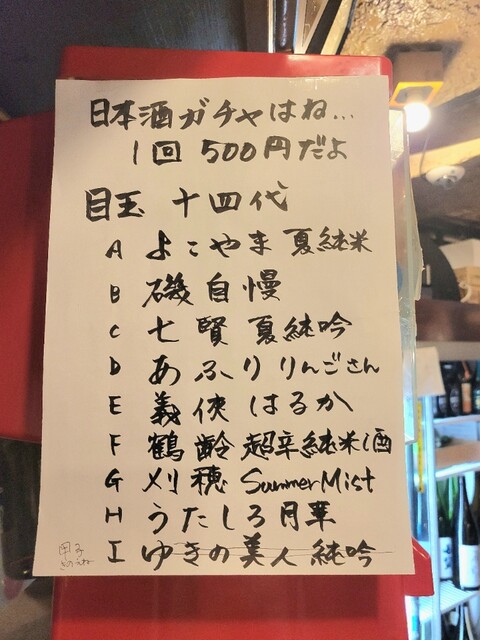 日本酒ガチャはね...
1回 500円だよ
目玉 十四代
A よこやま 夏純米
B 磯自慢
C 七賢 夏純吟
D あふり りんごさん
E 義侠 はるか
F 鶴齢 超辛純米酒
G 刈穂 Summer Mist
H うたしろ 月華
I ゆきの美人 純吟
甲子
きのえね